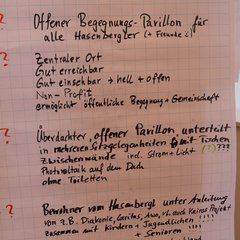 Offener Begegnungs-Pavillon für
alle Hasenbergler (+ Freunde
?
Zentraler Ort
Gut erreichbar
Gut einsehbar → hell + offen
Non-Profit
ermöglicht öffentliche Begegnung + Gemeinschaft
?
Überdachter offener Pavillon unterteilt
in mehreren Sitzgelegenheiten mit Tischen
Zwischenwände incl. Strom + Licht (?)???
Photovoltaik auf dem Dach
ohne Toiletten
?
Bewohner vom Hasenbergl unter Anleitung
von z.B. Diakonie, Caritas, Awo, vl. auch Keims Projekt
zusammen mit Kindern + Jugendlichen !!!
+ Senioren !!!